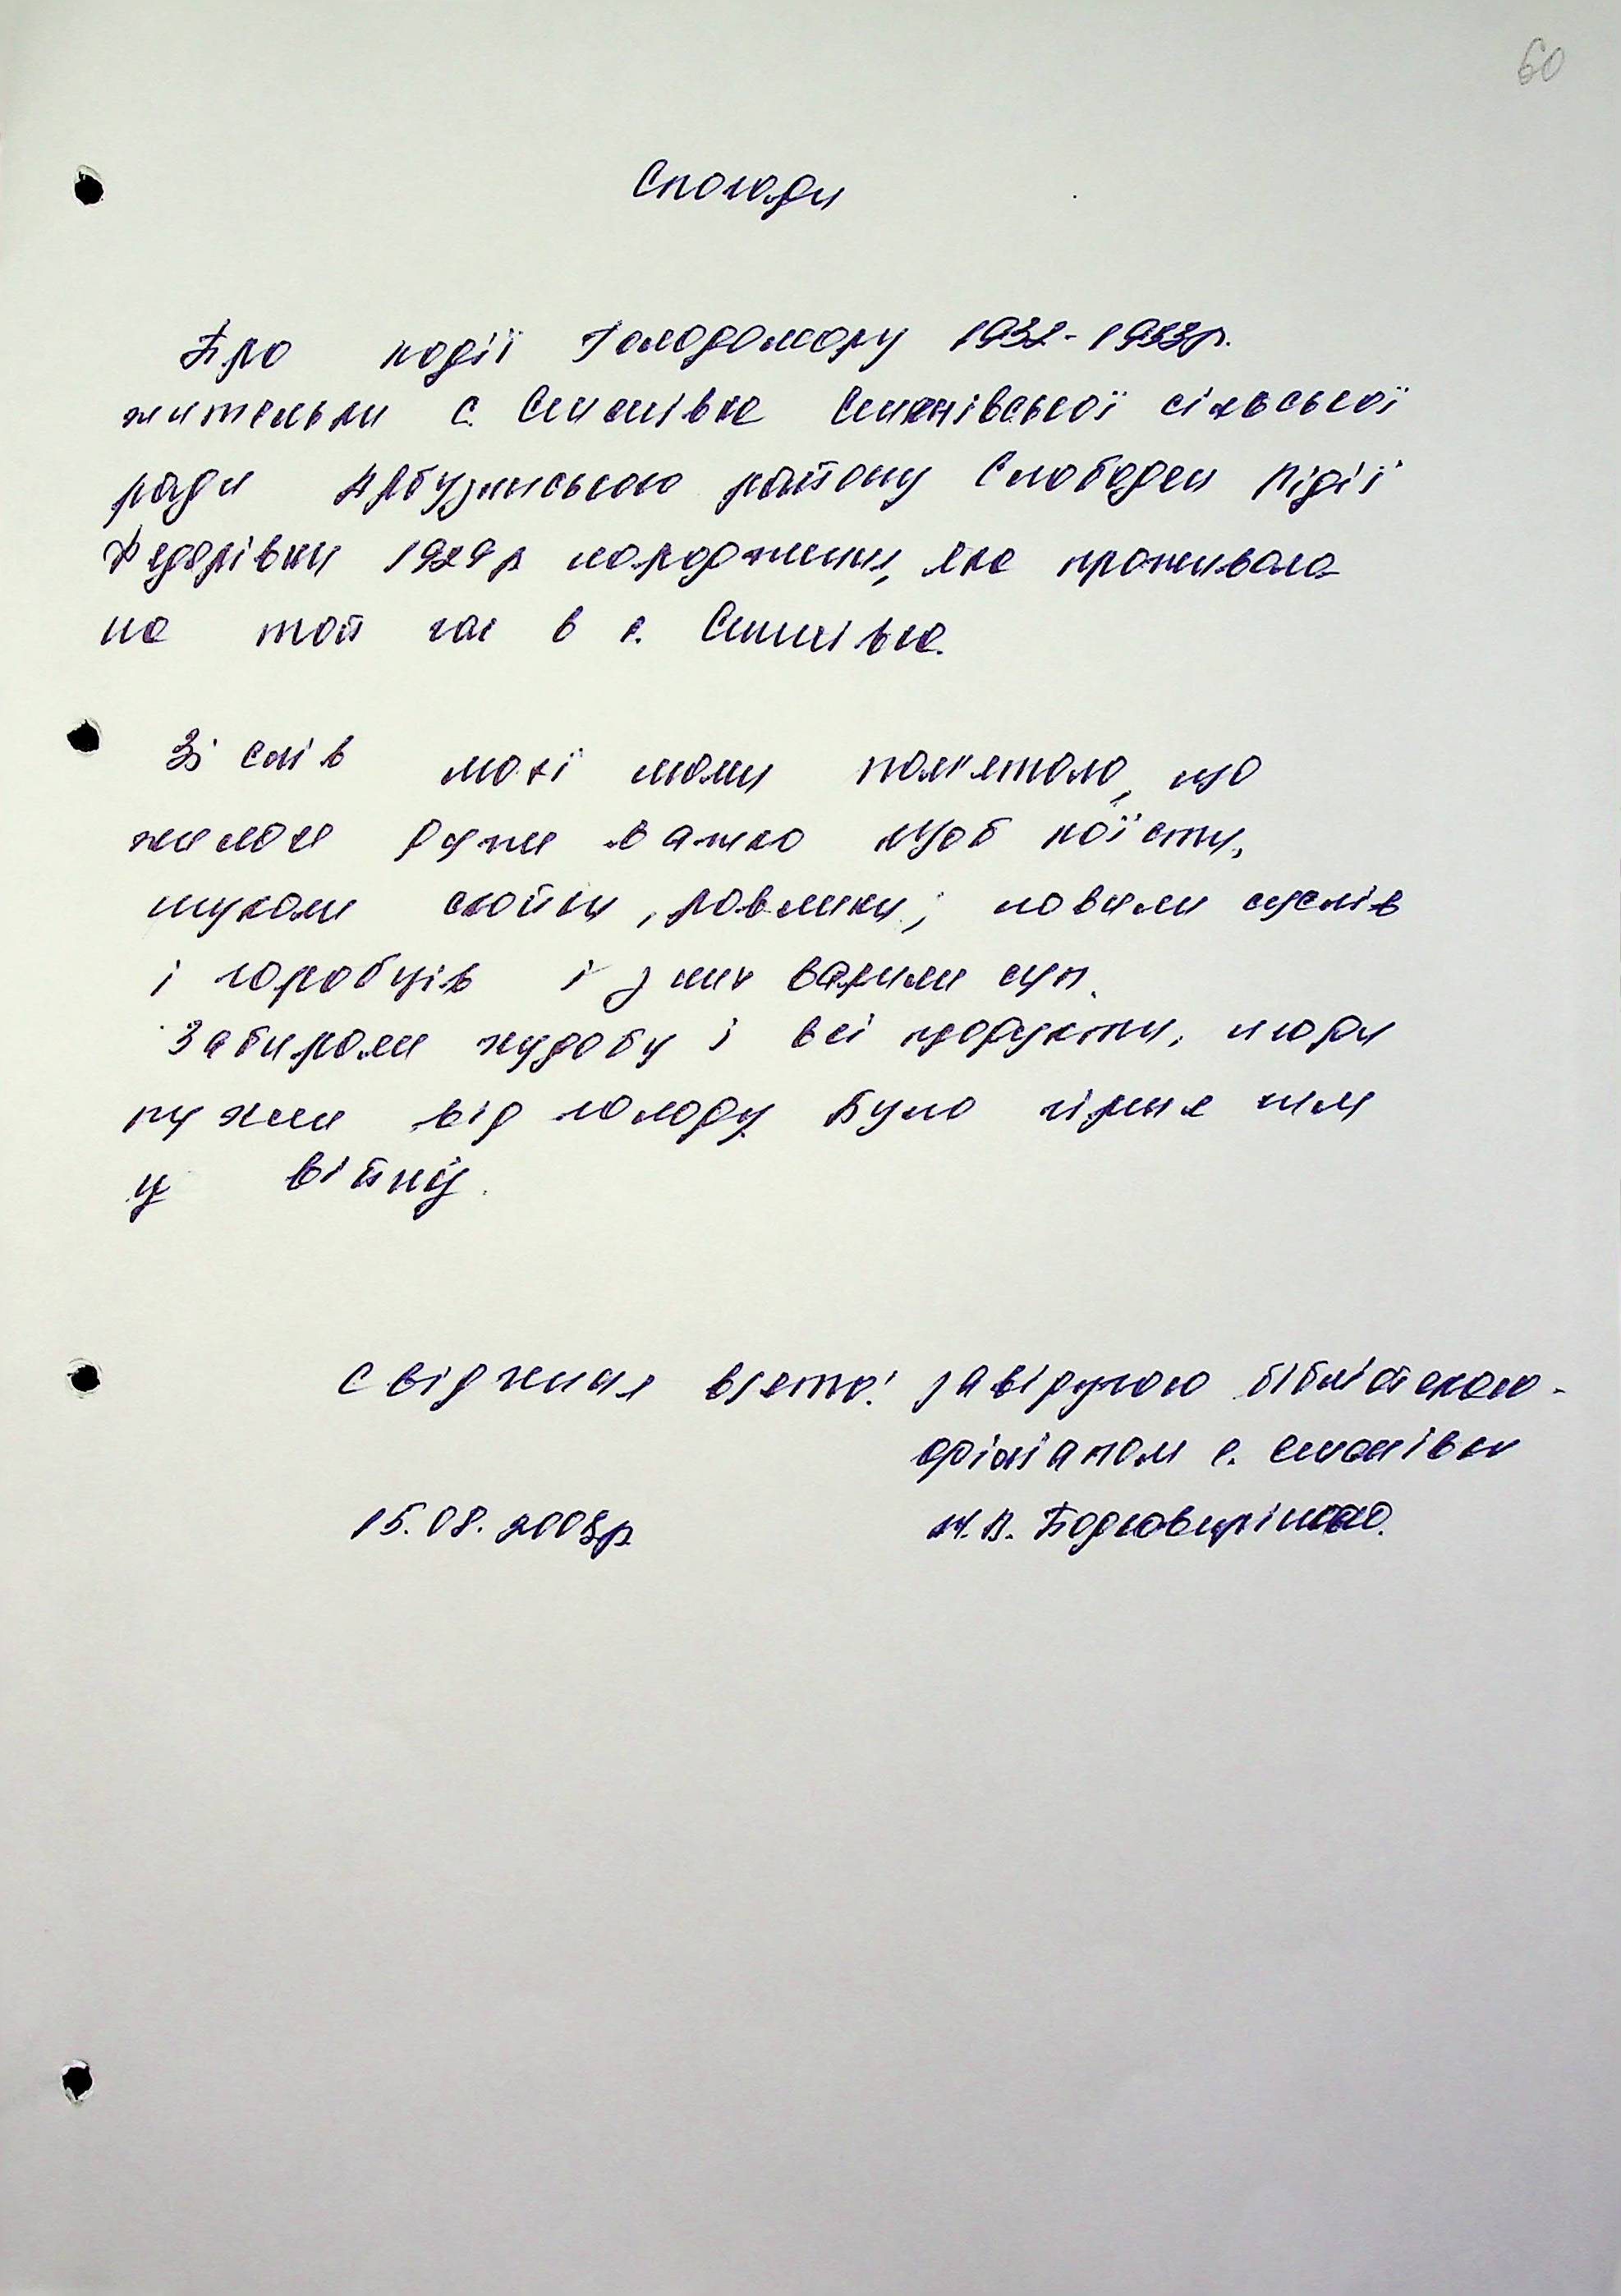 60
Спогади
Про події Голодомору 1932-1933р.
жительки с. Семенівка Семенівської сільської
ради Арбузинського району Слободен Лідії
Федорівни 1929 р народження, яка проживала
на той час в с. Семенівка.
Зі слів моєї мами пам'ятаю, що
жилося дуже важко щоб поїсти,
шукали скойки, равлики, ловили суслів
і горобців і з них варили суп.
Забирали худобу і всі продукти, люди
пухли від голоду було гірше чим
у війну.
Свідчення взято: завідуючою бібліотекою-
філіалом с. Семенівки
15.08.2008р.